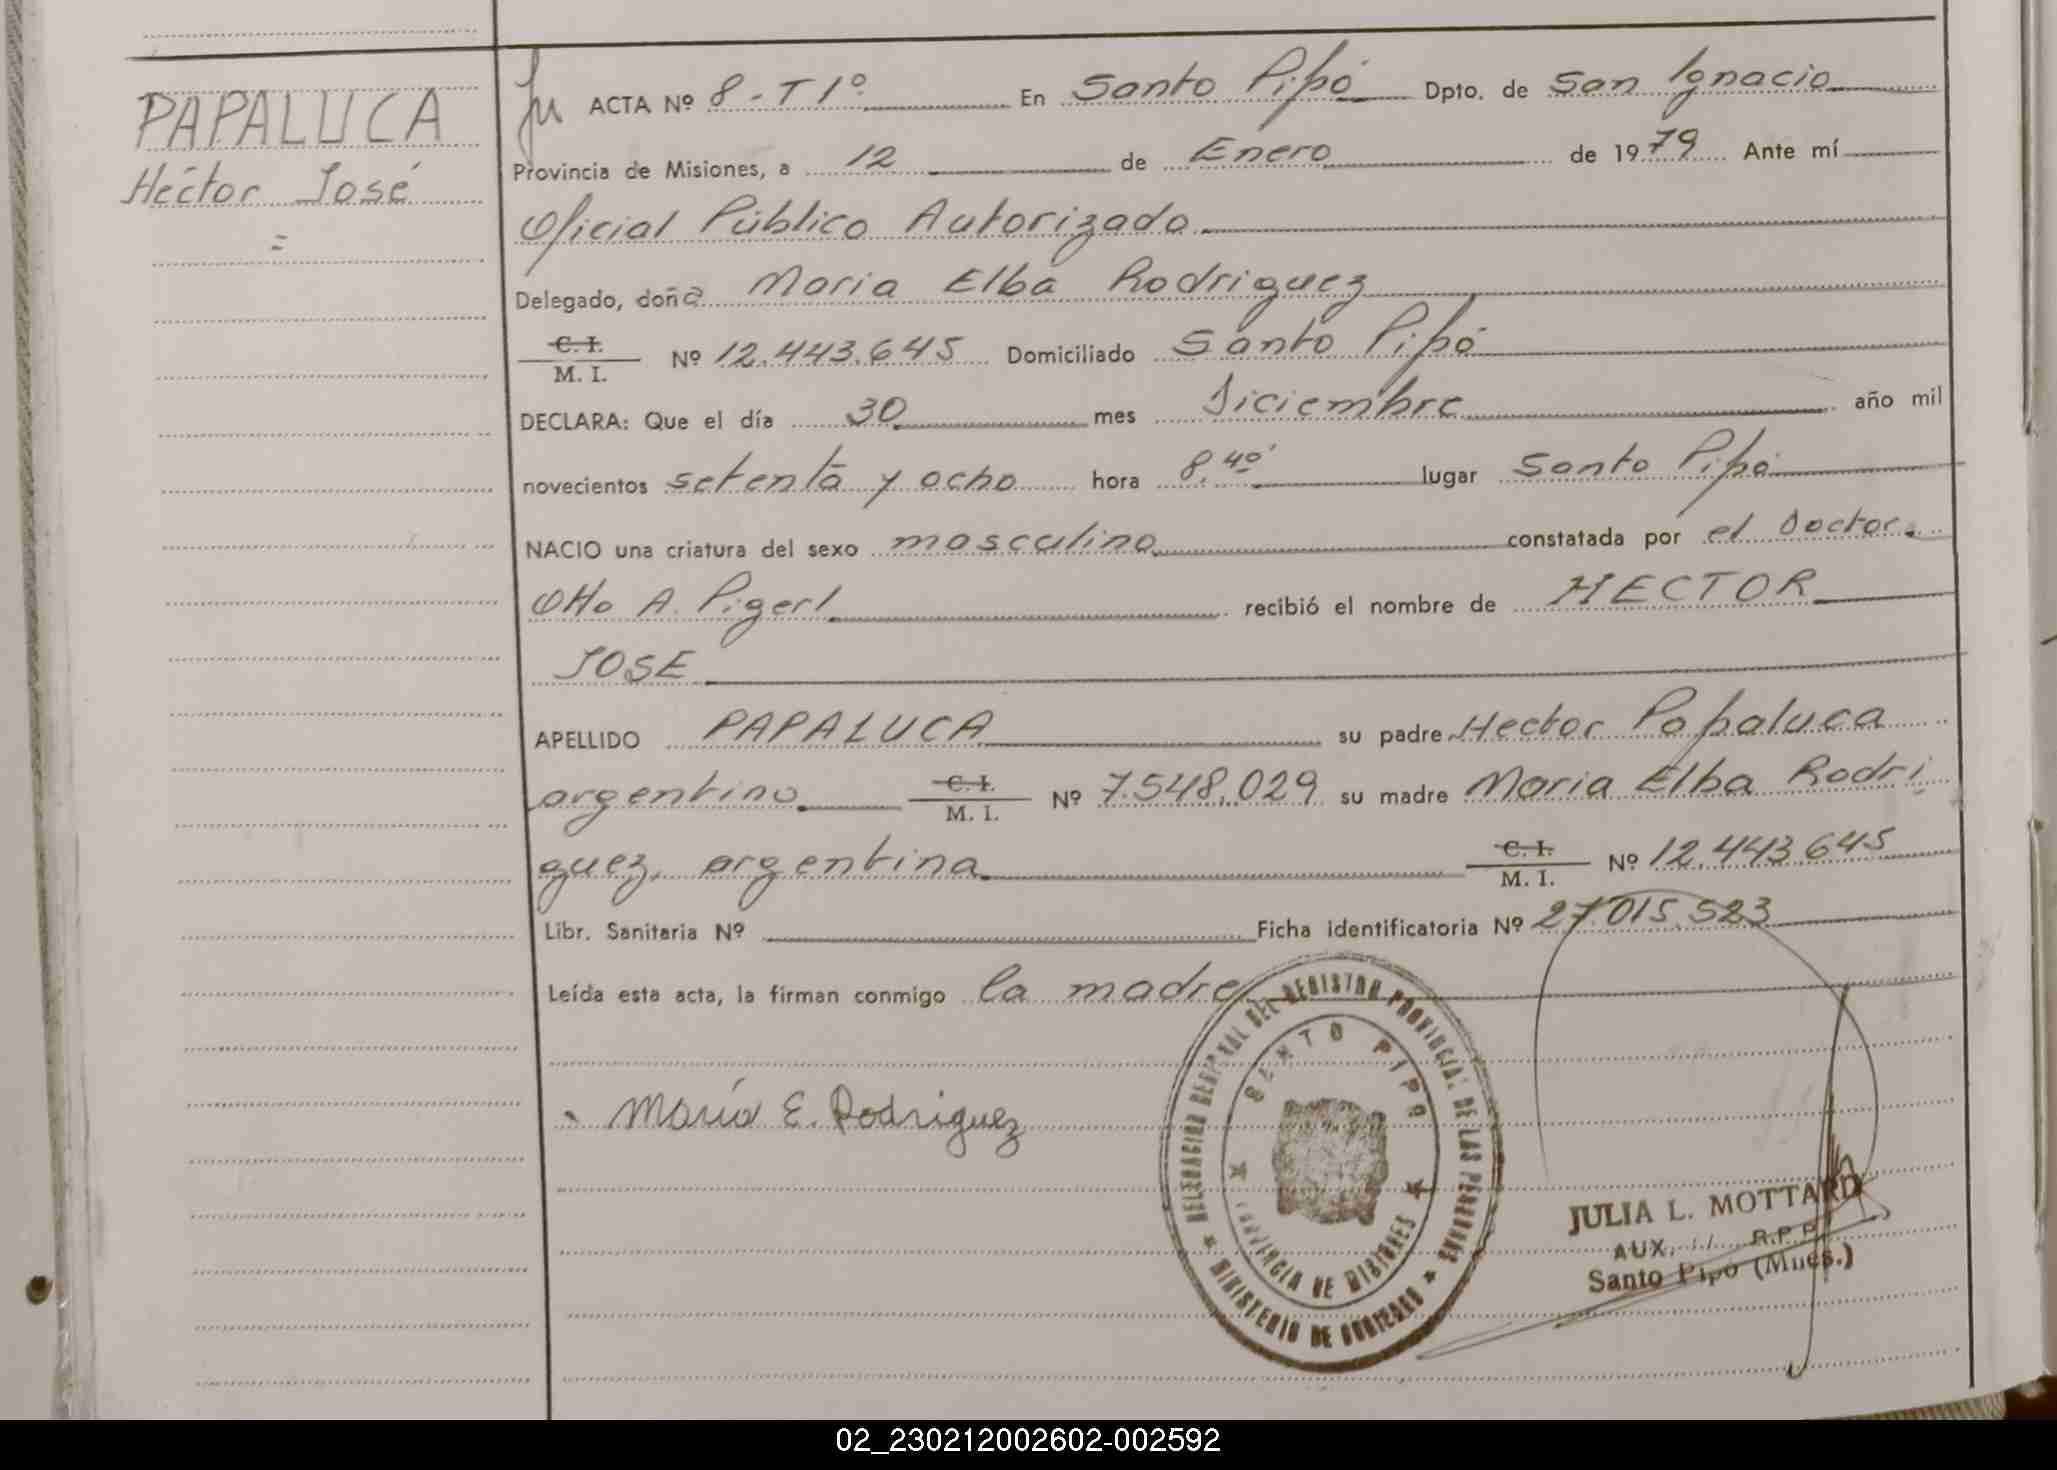 PAPALUCA
Héctor José
=
ACTA Nº 8-T1º En Santo Pipó Dpto. de San Ignacio
Provincia de Misiones, a 12 de Enero de 1979 Ante mí
Oficial Público Autorizado
Delegado, doña Maria Elba Rodriguez
C. I.
M. I. Nº 12.443.645 Domiciliado Santo Pipó
DECLARA: Que el día 30 mes Diciembre año mil
novecientos setenta y ocho hora 8,40' lugar Santo Pipó
NACIO una criatura del sexo masculino constatada por el Doctor
Otto A. Pigerl recibió el nombre de HECTOR
JOSE
APELLIDO PAPALUCA su padre Hector Papaluca
argentino C. I. M. I. Nº 7.548.029 su madre Maria Elba Rodri
guez, argentina C. I. M. I. Nº 12.443.645
Libr. Sanitaria Nº Ficha identificatoria Nº 27.015.523
Leída esta acta, la firman conmigo la madre
María E. Rodriguez
DEL REGISTRO PROVINCIAL DE LAS PERSONAS
SANTO PIPO
PROVINCIA DE MISIONES
MINISTERIO DE GOBIERNO
JULIA L. MOTTARD
AUX. R.P.P.
Santo Pipó (Mnes.)
02_230212002602-002592